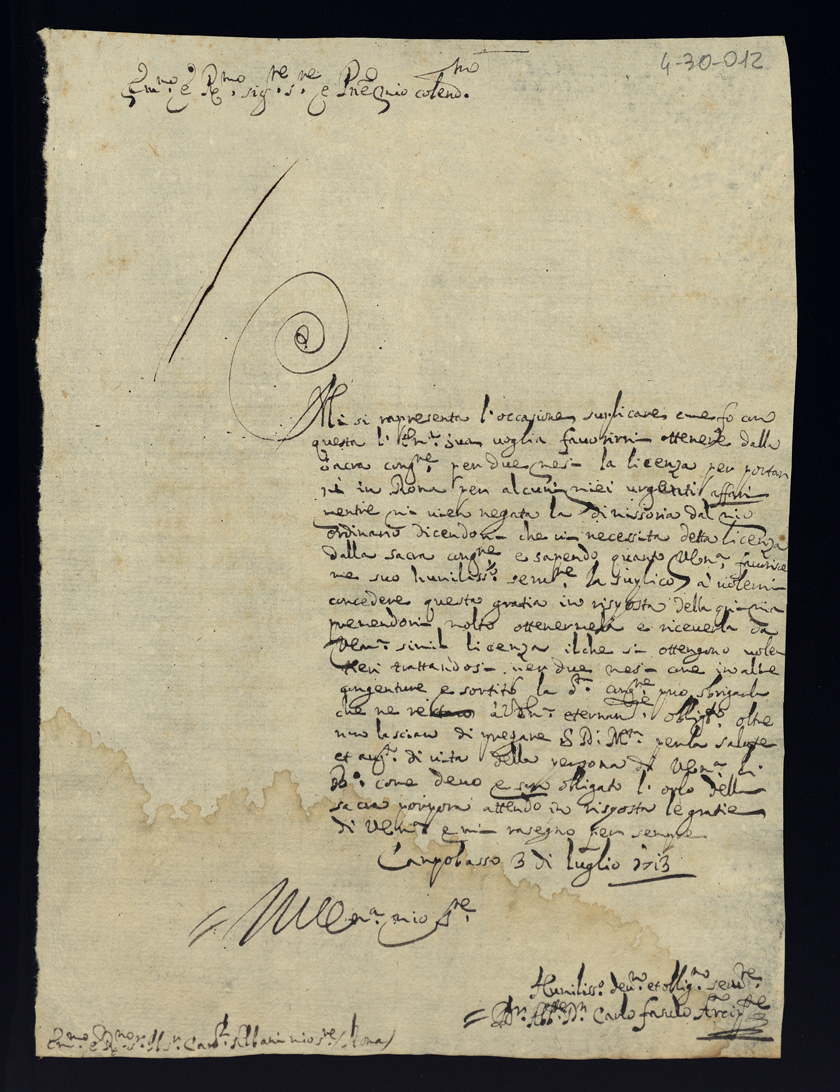 4-30-012
Em.mo e R.mo sig.re s.re e P.ne mio colend.mo
Mi si rappresenta l'occasione suplicare come fo con
questa l'Em.a sua voglia favorirmi ottenere dalla
Sacra cong.ne per due mesi la licenza per portar
mi in Roma per alcuni miei urgenti affari
mentre mi vien negata la dimissoria dal mio
ordinario dicendomi che vi necessita detta licenza
dalla sacra cong.ne e sapendo quanto V.Em.a favorisce
me suo humiliss.o serv.re la suplico à volermi
concedere questa gratia in risposta della
premendomi molto ottenermela e riceverla da
V.Em.a simil licenza il che si ottengono volen
tieri trattandosi per due mesi come in altre
congenture e sortito la d.a cong.ne può sbrigarla
che ne à V.Em.a eternam.e oblig.to oltre
non lasciarò di pregare S.D.M.tà per la salute
et aug.to di vita della persona di V.Em.a
come devo e son obligato l'
sacra porpora attendo in risposta le gratie
di V.Em.a e mi rasegno per sempre
Campobasso 3 di luglio 1713
mio S.re
Humiliss.o dev.mo et oblig.mo serv.re
Carlo
Em.mo e R.mo Sr. Sr. Card.l Albani mio s.re (Roma)